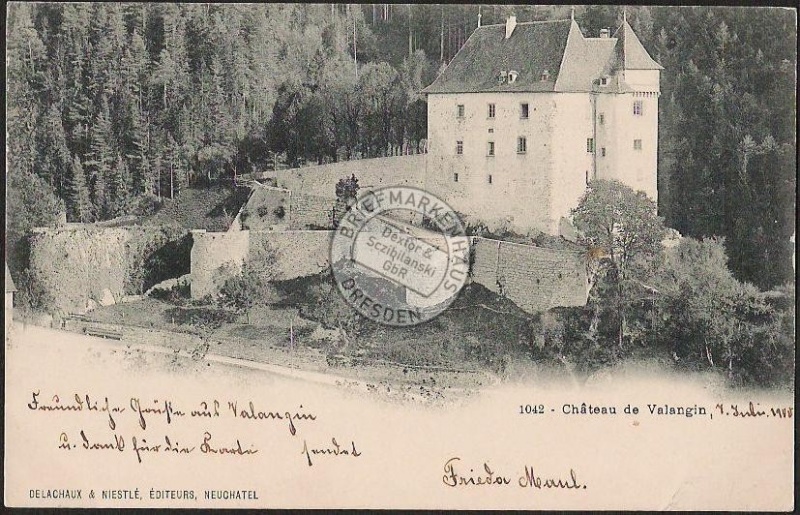 BRIEFMARKENHAUS
Bextor &
Sczibilanski
GbR
DRESDEN
1042 - Château de Valangin, 7. Juli. 1900
Freundliche Grüße aus Valangin
u. dank für die Karte sendet
Frieda Maul.
DELACHAUX & NIESTLÉ, ÉDITEURS, NEUCHATEL